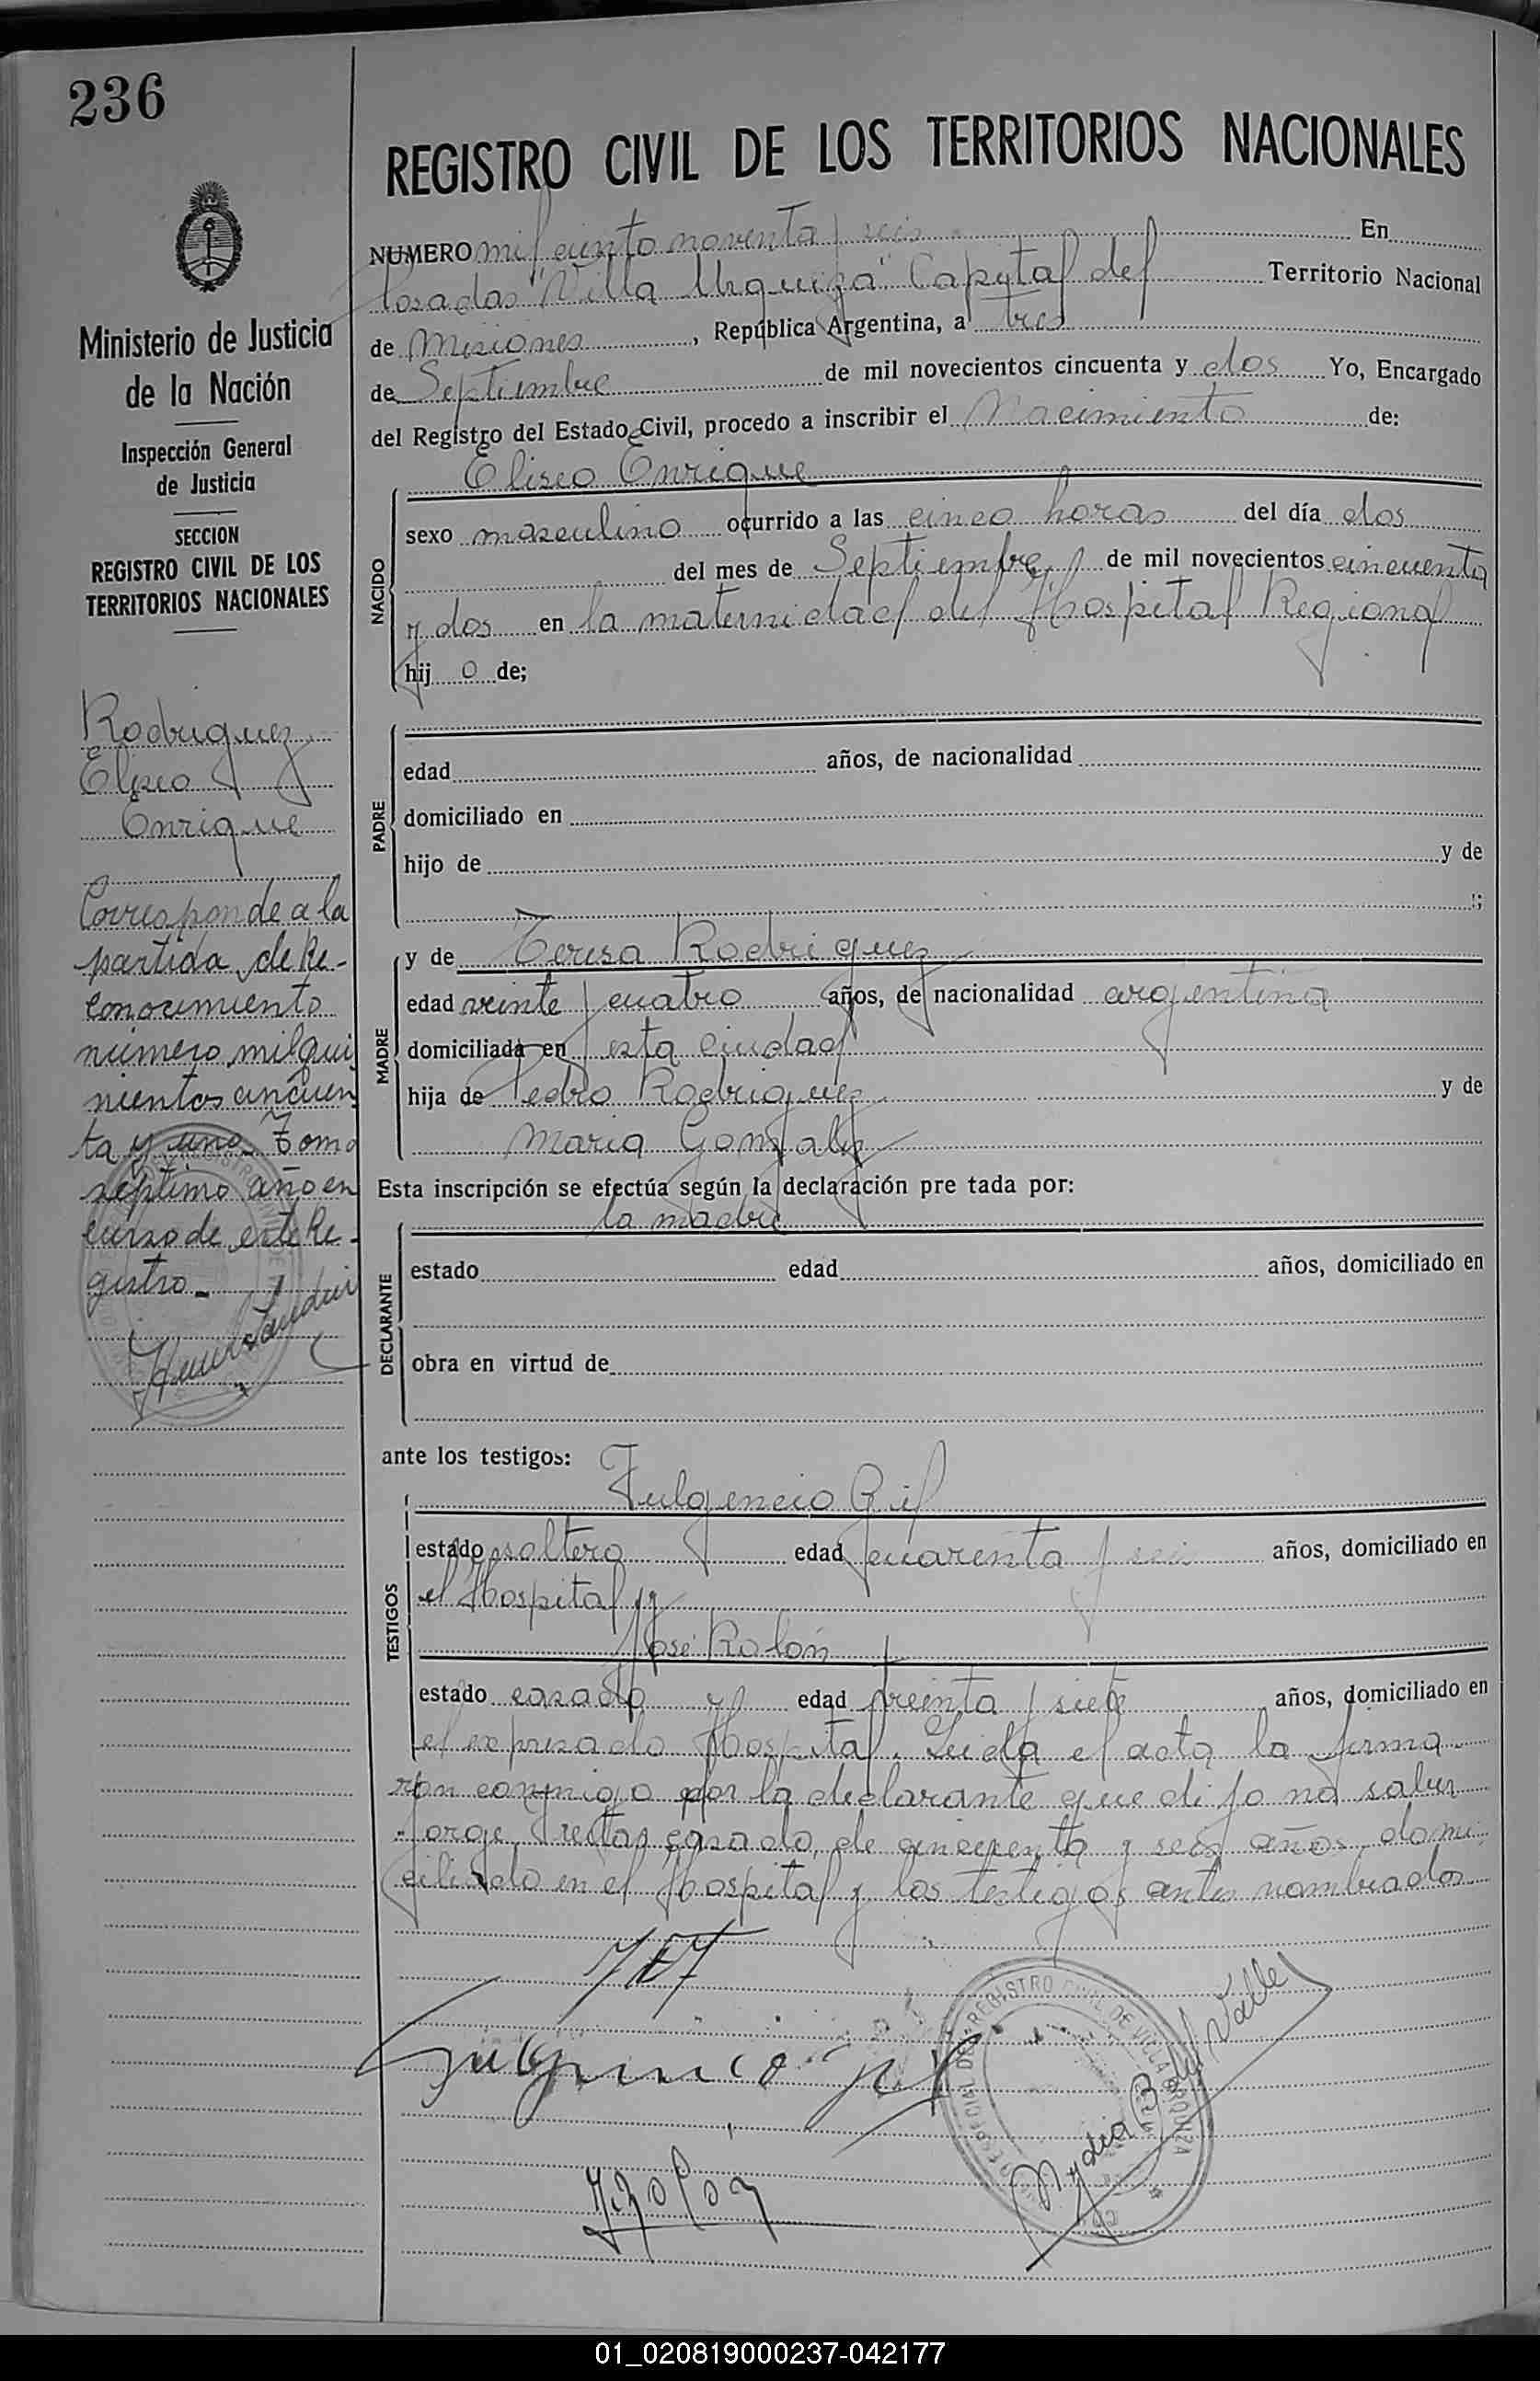 236
Ministerio de Justicia
de la Nación
Inspección General
de Justicia
SECCION
REGISTRO CIVIL DE LOS
TERRITORIOS NACIONALES
Rodriguez
Eliseo
Enrique
Corresponde a la
partida de Re-
conocimiento
número mil qui
nientos cincuen
ta y uno Tomo
séptimo año en
curso de este Re-
gistro -
REGISTRO CIVIL DE LOS TERRITORIOS NACIONALES
NUMERO mil ciento noventa y seis. En
Posadas "Villa Urquiza" Capital del Territorio Nacional
de Misiones, República Argentina, a tres
de Septiembre de mil novecientos cincuenta y dos Yo, Encargado
del Registro del Estado Civil, procedo a inscribir el Nacimiento de:
Eliseo Enrique
NACIDO
sexo masculino ocurrido a las cinco horas del día dos
del mes de Septiembre de mil novecientos cincuenta
y dos en la maternidad del Hospital Regional
hij o de;
PADRE
edad años, de nacionalidad
domiciliado en
hijo de y de
MADRE
y de Teresa Rodriguez
edad veinte y cuatro años, de nacionalidad argentina
domiciliada en esta ciudad
hija de Pedro Rodriguez y de
Maria Gonzalez
Esta inscripción se efectúa según la declaración pre tada por:
la madre
DECLARANTE
estado edad años, domiciliado en
obra en virtud de
ante los testigos:
Fulgencio Gil
TESTIGOS
estado soltero edad cuarenta y seis años, domiciliado en
el Hospital y
José Rolón
estado casado edad treinta y siete años, domiciliado en
el expresado Hospital. Leida el acta la firma
ron conmigo por la declarante que dijo no saber
Jorge casado, de cincuenta y seis años, domi
ciliado en el Hospital y los testigos antes nombrados
Fulgencio Gil
J. Rolon
REGISTRO CIVIL DE VILLA URQUIZA
Nydia B. del Valle
01_020819000237-042177